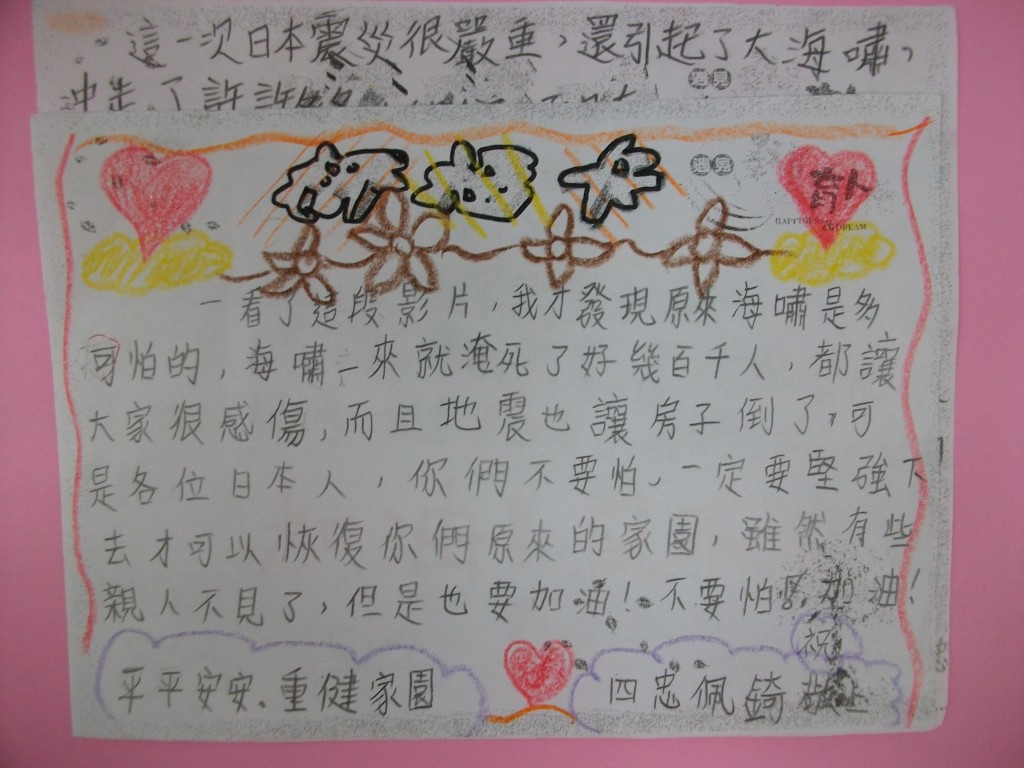 這一次日本震災很嚴重，還引起了大海嘯，
沖走了許許多多
遇見
遇見
一看了這段影片，我才發現原來海嘯是多
可怕的，海嘯一來就淹死了好幾百千人，都讓
大家很感傷，而且地震也讓房子倒了，可
是各位日本人，你們不要怕、一定要堅強下
去才可以恢復你們原來的家園，雖然有些
親人不見了，但是也要加油！不要怕！加油！
祝
平平安安.重健家園
四忠佩錡敬上